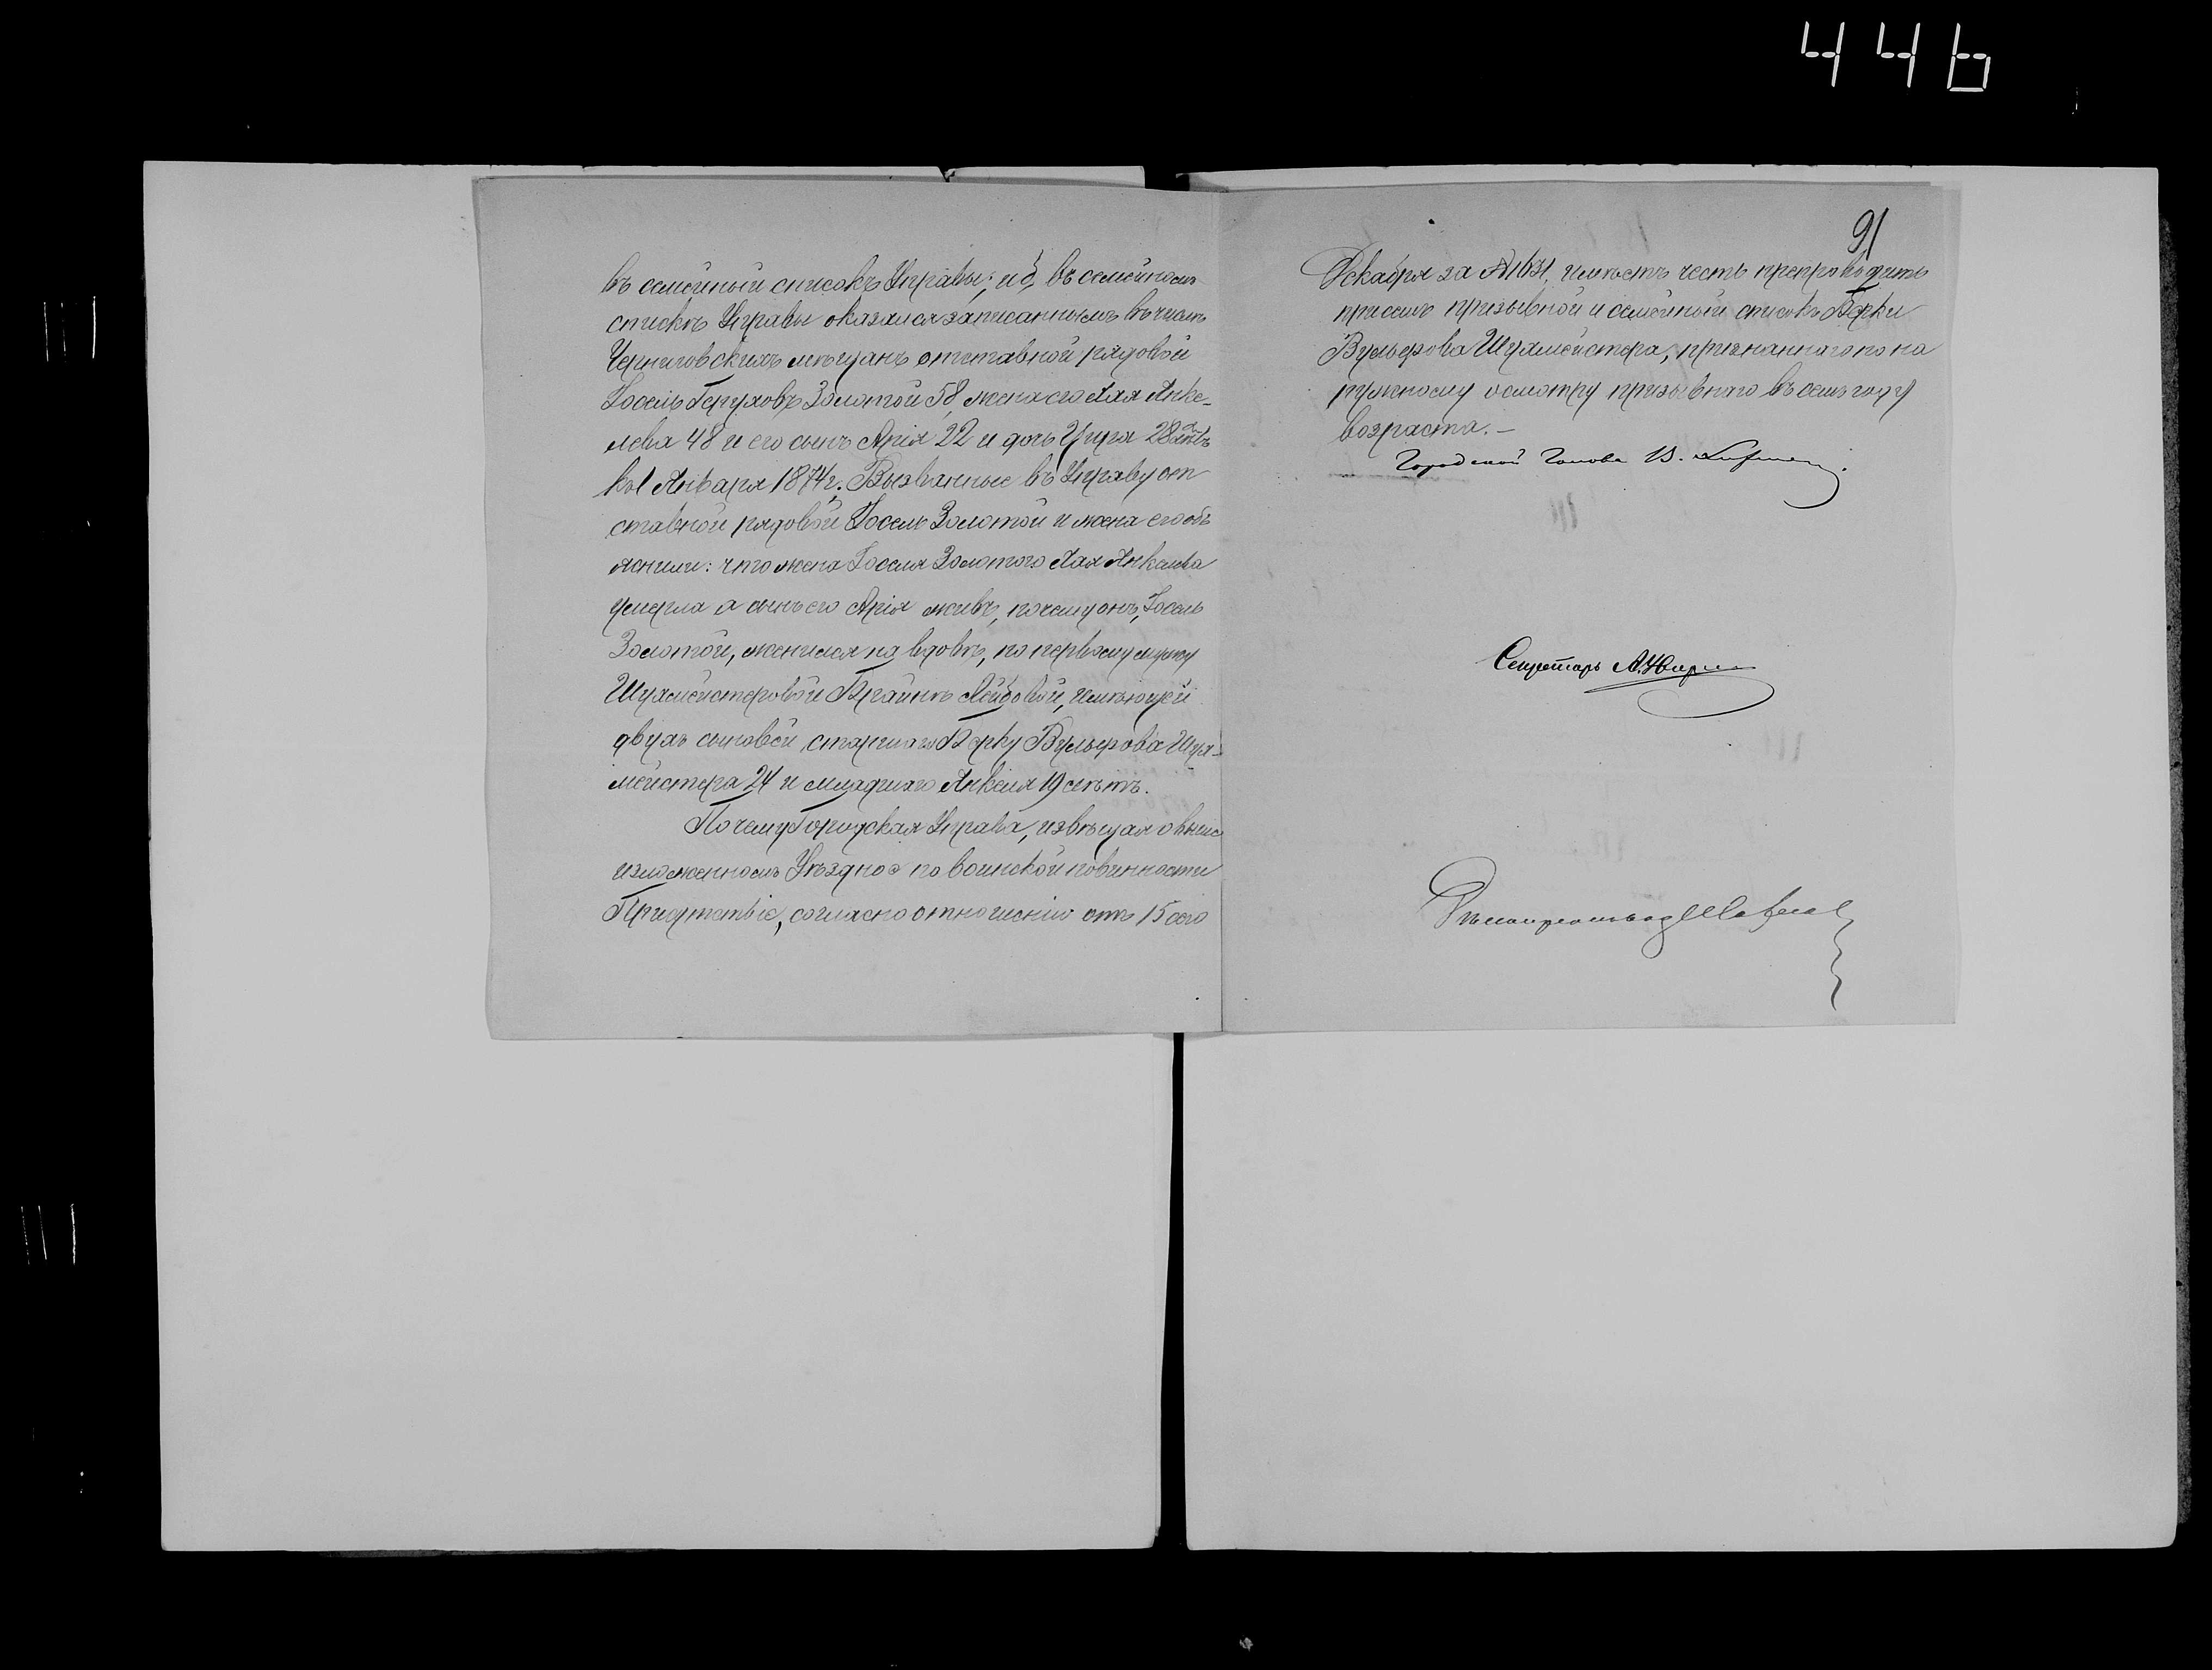 446
91
въ семейный списокъ Управы; и б, въ семейномъ
спискѣ Управы оказался записаннымъ въ числѣ
Черниговскихъ мѣщанъ отставной рядовой
Іосель Геруховъ Золотой 58, жена его Хая Янке-
лева 48 и его сынъ Арія 22 и дочь 28 лѣтъ
къ 1 Января 1874 г. Вызванные въ Управу от
ставной рядовой Іосель Золотой и жена его объ
яснили: что жена Іоселя Золотого Хая Янкелева
умерла а сынъ его Арія живъ, почему онъ, Іосель
Золотой, женился на вдовѣ, по первому мужу
Шухмейстеровой Брайнѣ Лейбовой, имѣющей
двухъ сыновей, старшаго Берку Вульфова Шух-
мейстера 24 и младшаго Янкеля 19 лѣтъ.
Почему Городская Управа, извѣщая о выше
изложенномъ Уѣздное по воинской повинности
Присутствіе, согласно отношенію отъ 15 сего
Декабря за № 1671, имѣетъ честь препроводить
при семъ призывной и семейный списокъ Берки
Вульфова Шухмейстера, признаннаго по на
ружному осмотру призывнаго въ семъ году
возраста.-
Городской Голова В.
Секретарь А.
Дѣлопроизвод